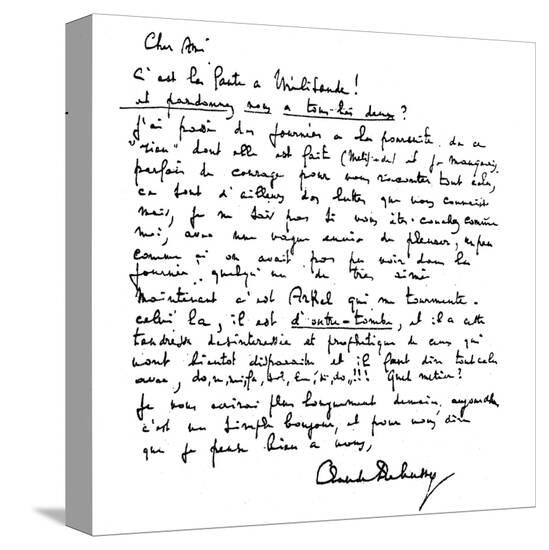 Cher Ami
C'est la faute à Mélisande !
et pardonnez nous à tous les deux ?
J'ai passé des journées à la poursuite de ce
"rien" dont elle est faite (Mélisande) et je manquais
parfois de courage pour vous raconter tout cela,
ce sont d'ailleurs des luttes que vous connaissez
mais, je ne sais pas si vous êtes couché comme
moi, avec une vague envie de pleurer, un peu
comme si on avait pas pu voir dans la
journée quelqu'un de très aimé
Maintenant c'est Arkel qui me tourmente.
celui là, il est d'outre-tombe, et il a cette
tendresse désintéressée et prophétique de ceux qui
vont bientôt disparaître et il faut dire tout cela
avec, do, ré, mi, fa, sol, la, si, do,, !!! Quel métier ?
Je vous écrirai plus longuement demain, aujourd'hui
c'est un simple bonjour, et pour vous dire
que je pense bien à vous,
Claude Debussy